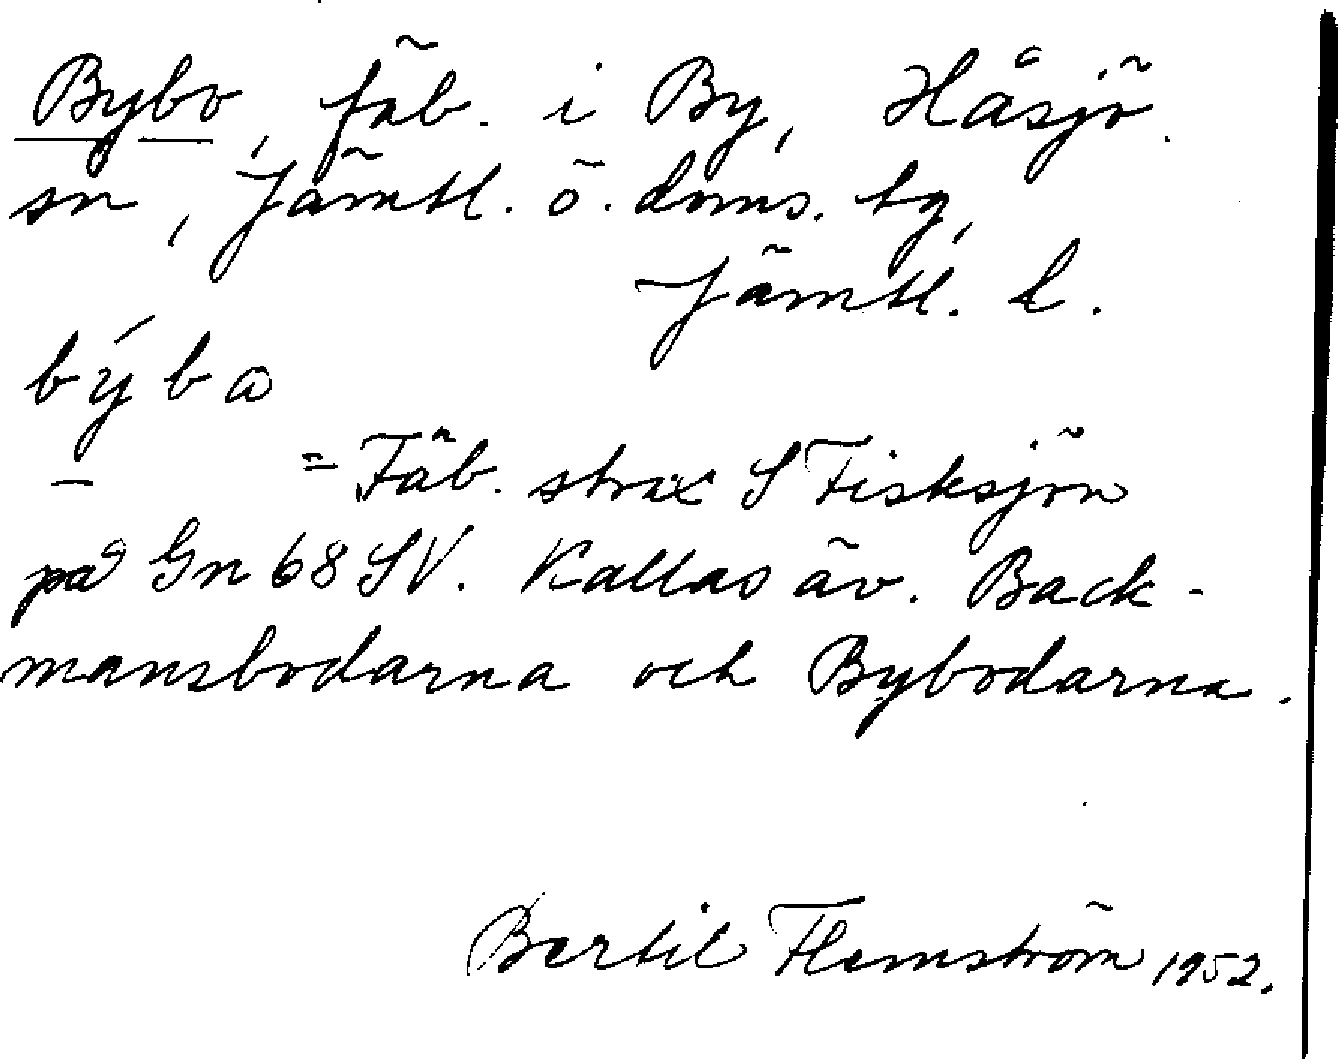 Bybo, fäb. i By, Håsjö
sn, Jämtl. ö. doms. tg,
Jämtl. l.
býbɷ
— = Fäb. strax S Fisksjön
på Gn 68 SV. Kallas äv. Back-
mansbodarna och Bybodarna.
Bertil Flemström 1952.